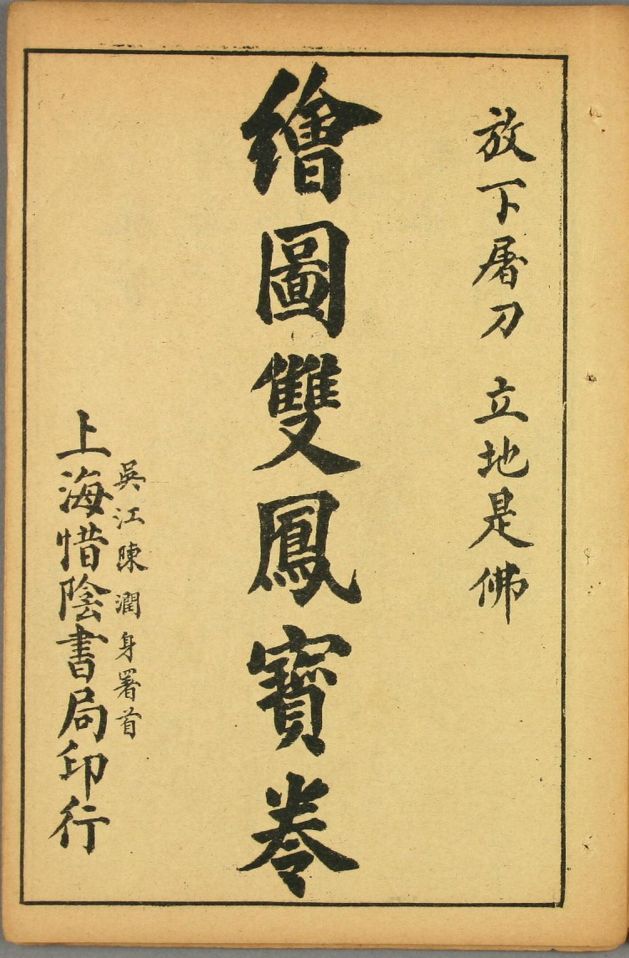 放下屠刀 立地是佛
繪圖雙鳳寳卷
吳江陳潤身署首
上海惜陰書局印行